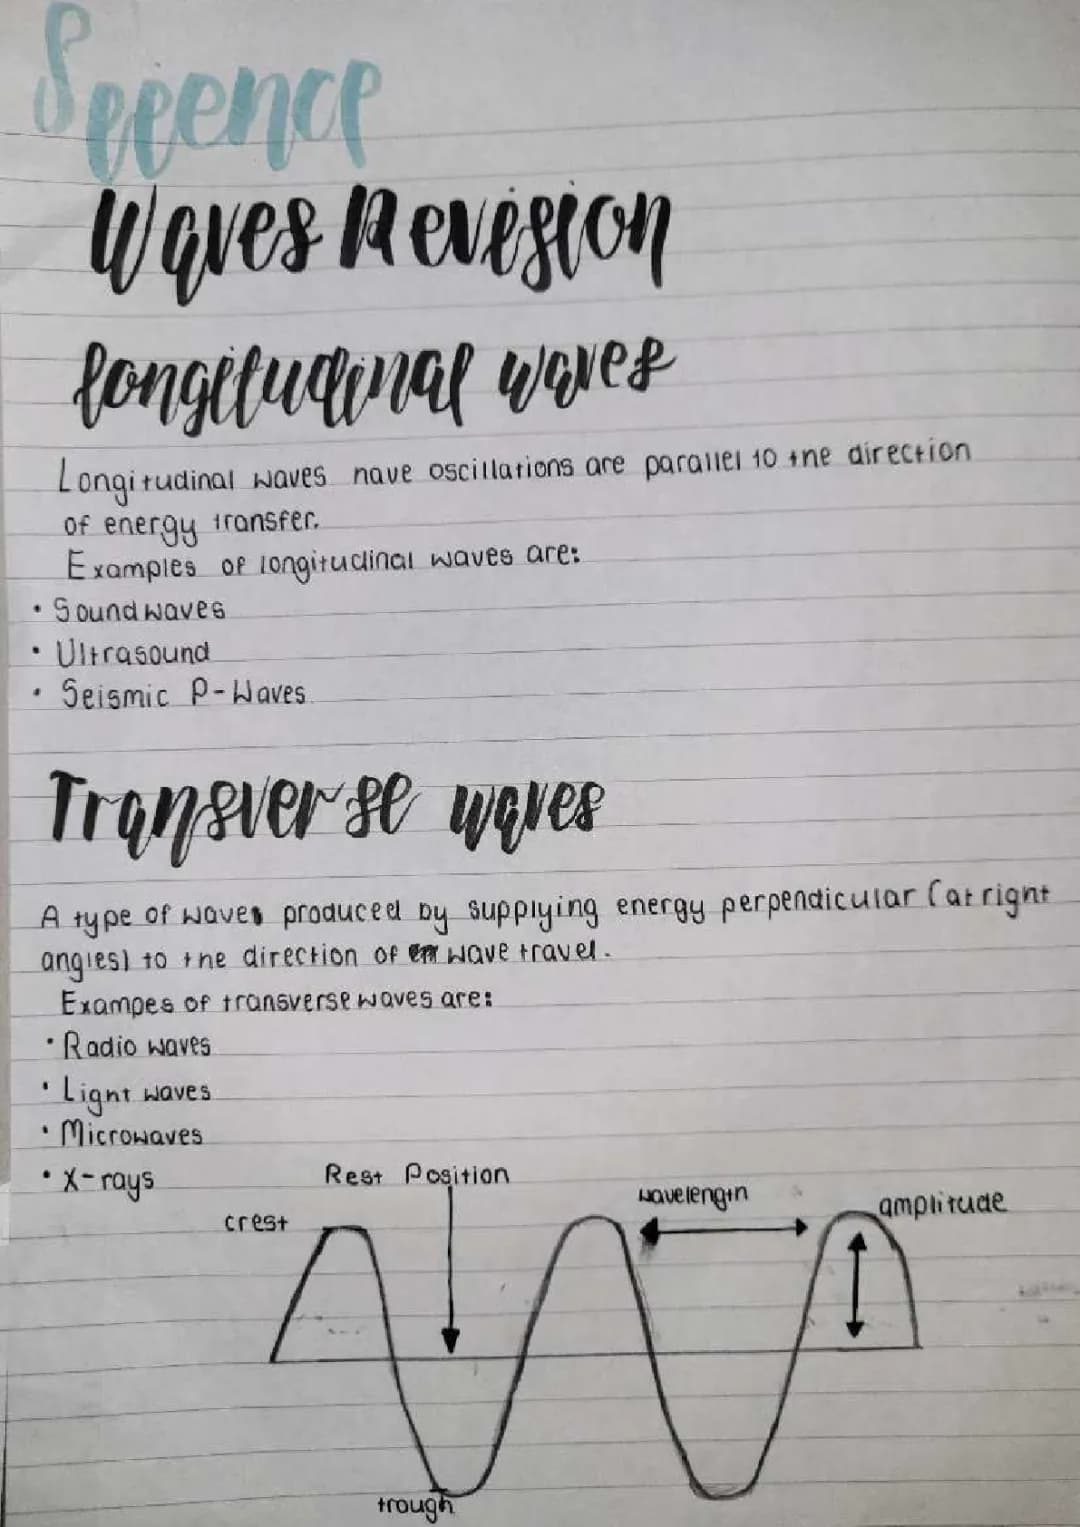 Science
Waves Revision
longitudinal waves
Longitudinal waves have oscillations are parallel to the direction
of energy transfer.
Examples of longitudinal waves are:
• Sound waves
• Ultrasound
• Seismic P-Waves
Transverse waves
A type of waves produced by supplying energy perpendicular (at right
angles) to the direction of wave travel.
Exampes of transverse waves are:
• Radio waves
• Light waves
• Microwaves
• X-rays
Rest Position
wavelength
amplitude
crest
trough